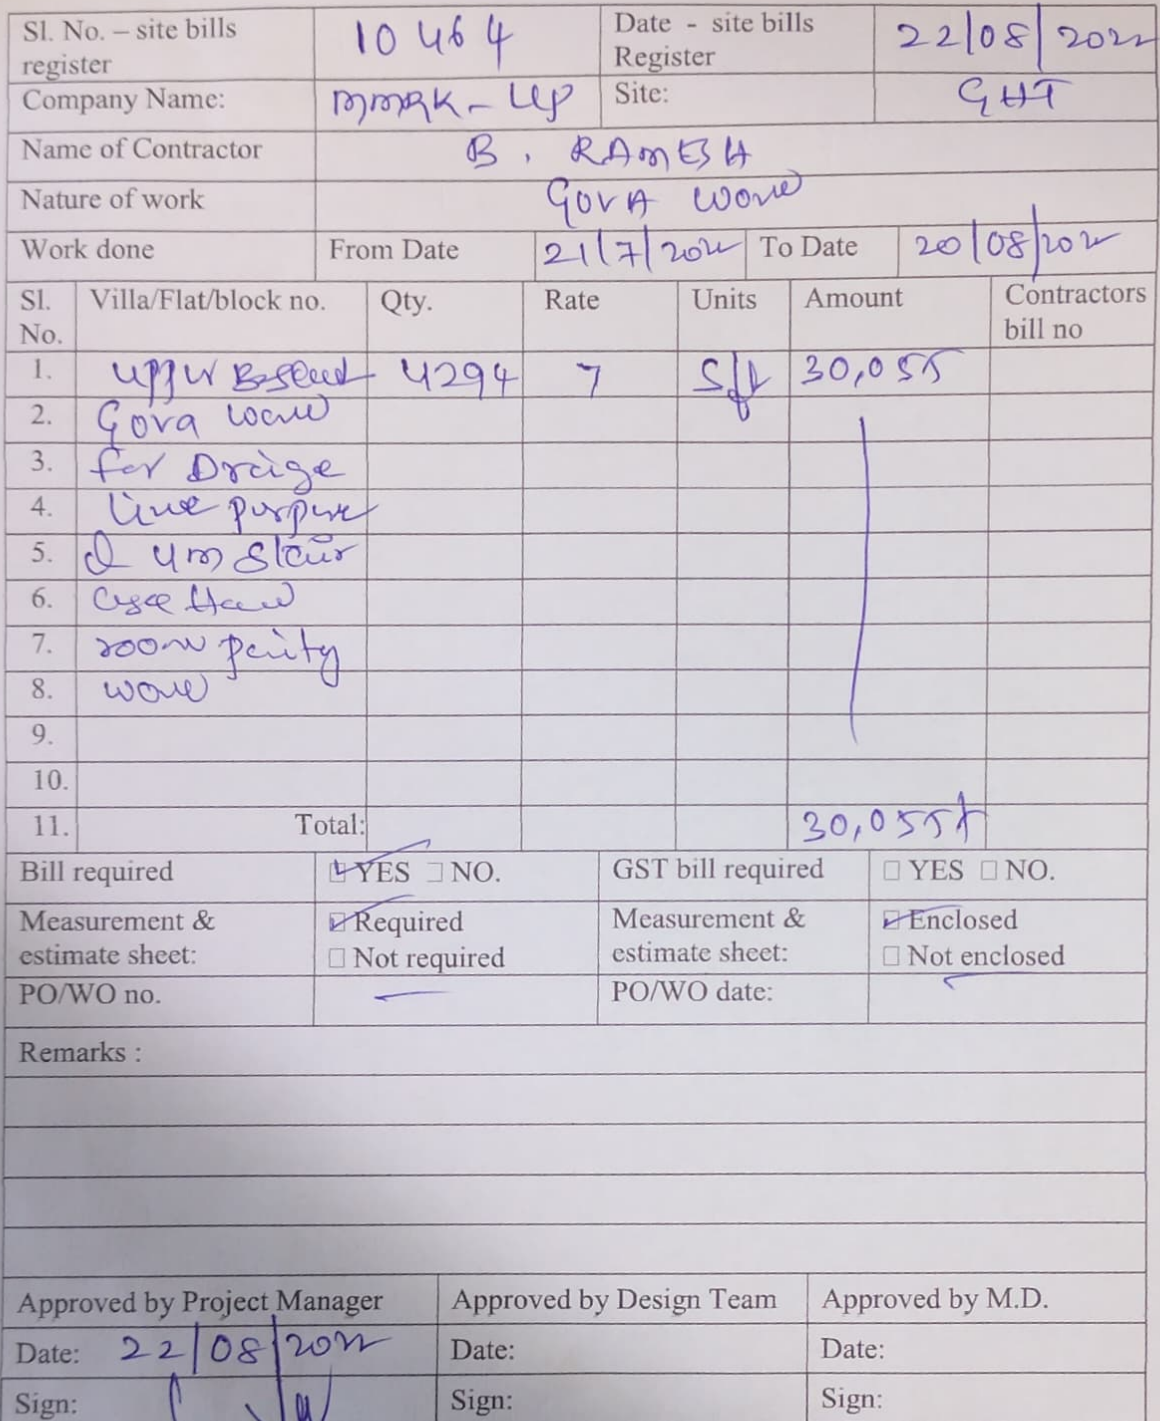 Sl. No. – site bills register 10464 Date - site bills Register 22/08/2022
Company Name: Site: GHT
Name of Contractor B. RAMESH
Nature of work Gova
Work done From Date 21/7/2022 To Date 20/08/2022
Sl. No. Villa/Flat/block no. Qty. Rate Units Amount Contractors bill no
1. 4294 7 Sft 30,055
2. Gova
3. for
4. line
5.
6.
7. room
8.
9.
10.
11. Total: 30,055
Bill required ☑ YES ☐ NO. GST bill required ☐ YES ☐ NO.
Measurement & estimate sheet: ☑ Required ☐ Not required Measurement & estimate sheet: ☑ Enclosed ☐ Not enclosed
PO/WO no. – PO/WO date: –
Remarks :
Approved by Project Manager Approved by Design Team Approved by M.D.
Date: 22/08/2022 Date: Date:
Sign: Sign: Sign: